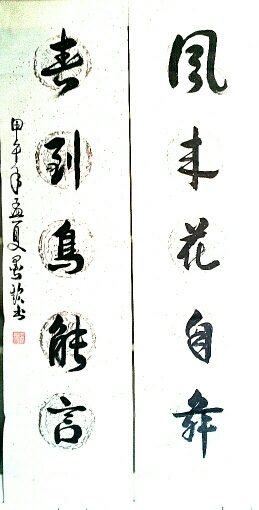 風来花自舞
春到鳥能言
甲午年孟夏墨嶔书